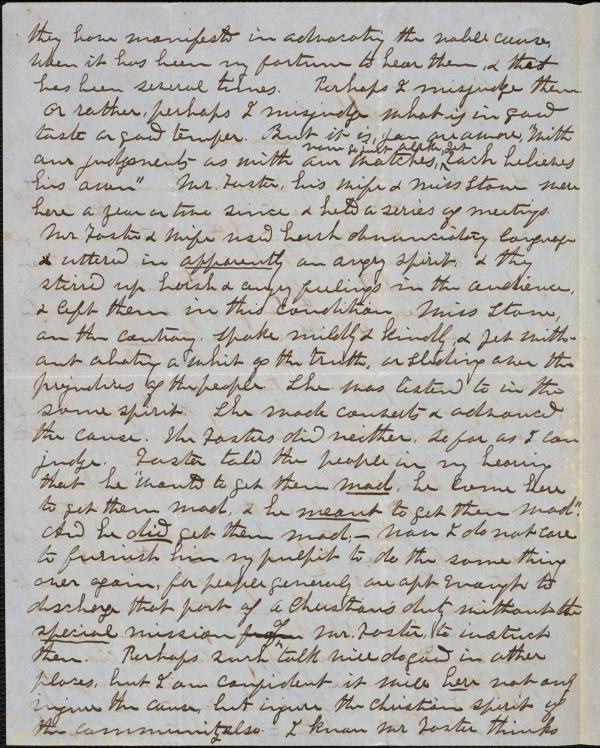 they have manifests in advocating the noble cause,
when it has been my fortune to hear them, & that
has been several times. Perhaps I misjudge them
or rather, perhaps I misjudge what is in good
taste or good temper. But it is, you are aware, "with
our judgments as with our watches, none go just alike, yet Each believes
his own" Mr. Foster, his wife & Miss Stone were
here a year or two since & held a series of meetings.
Mr Foster & wife used harsh denunciatory language
& uttered in apparently an angry spirit, & they
stired up harsh & angry feelings in the audience,
& left them in this condition. Miss Stone,
on the contrary, spoke mildly & kindly, & yet with-
out abating a whit of the truth, or sliding over the
prejudices of the people. She was listened to in the
same spirit. She made converts & advanced
the cause. The Fosters did neither, so far as I can
judge. Foster told the people in my hearing
that he "wanted to get them mad, he come here
to get them mad, & he meant to get them mad"
And he did get them mad,— Now I do not care
to furnish him my pulpit to do the same thing
over again, for people generally are apt enough to
discharge that part of a Christian's duty without the
special mission of Mr. Foster, to instruct
them. Perhaps such talk will do good in other
places, but I am confident it will here not only
injure the cause, but injure the christian spirit of
the community also. I know Mr Foster thinks